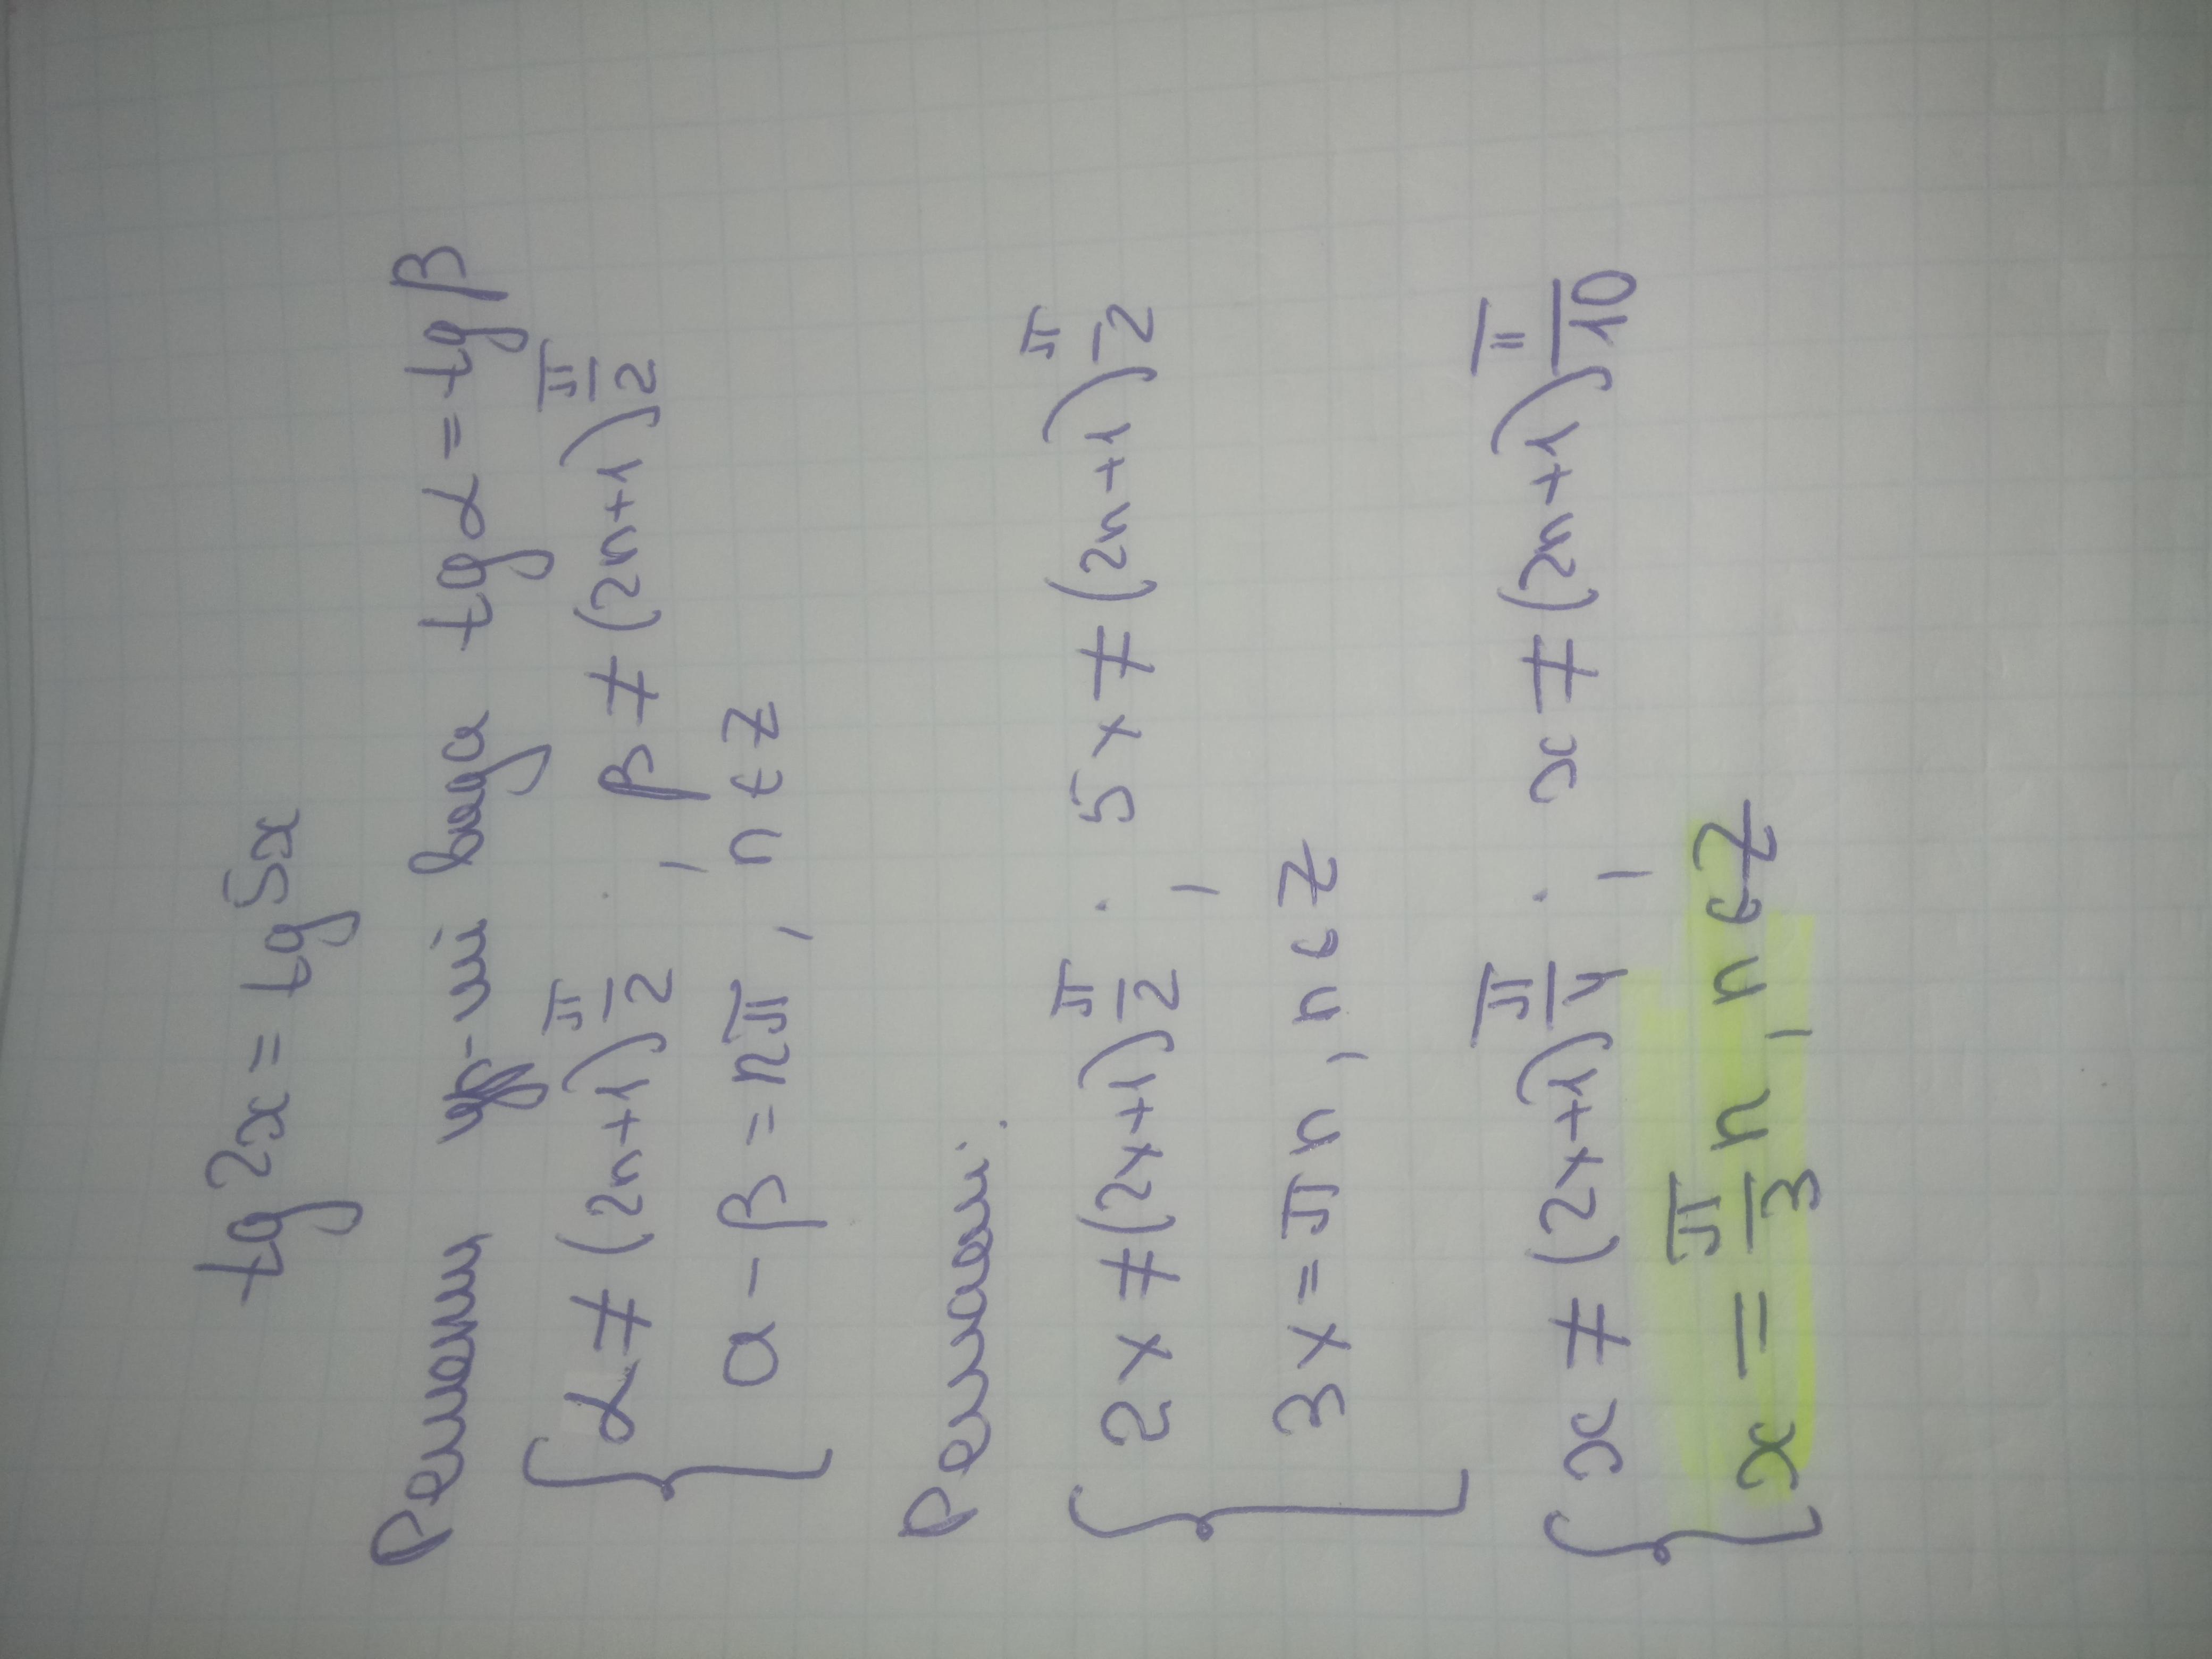 tg 2x = tg 5x
Решения ур-ний вида tg α = tg β
{ α ≠ (2n+1) π/2 ; β ≠ (2n+1) π/2
a - β = nπ, n ∈ Z
Решение:
{ 2x ≠ (2x+1) π/2 ; 5x ≠ (2n+1) π/2
3x = πn, n ∈ Z
{ x ≠ (2x+1) π/4 ; x ≠ (2n+1) π/10
x = π/3 n, n ∈ Z